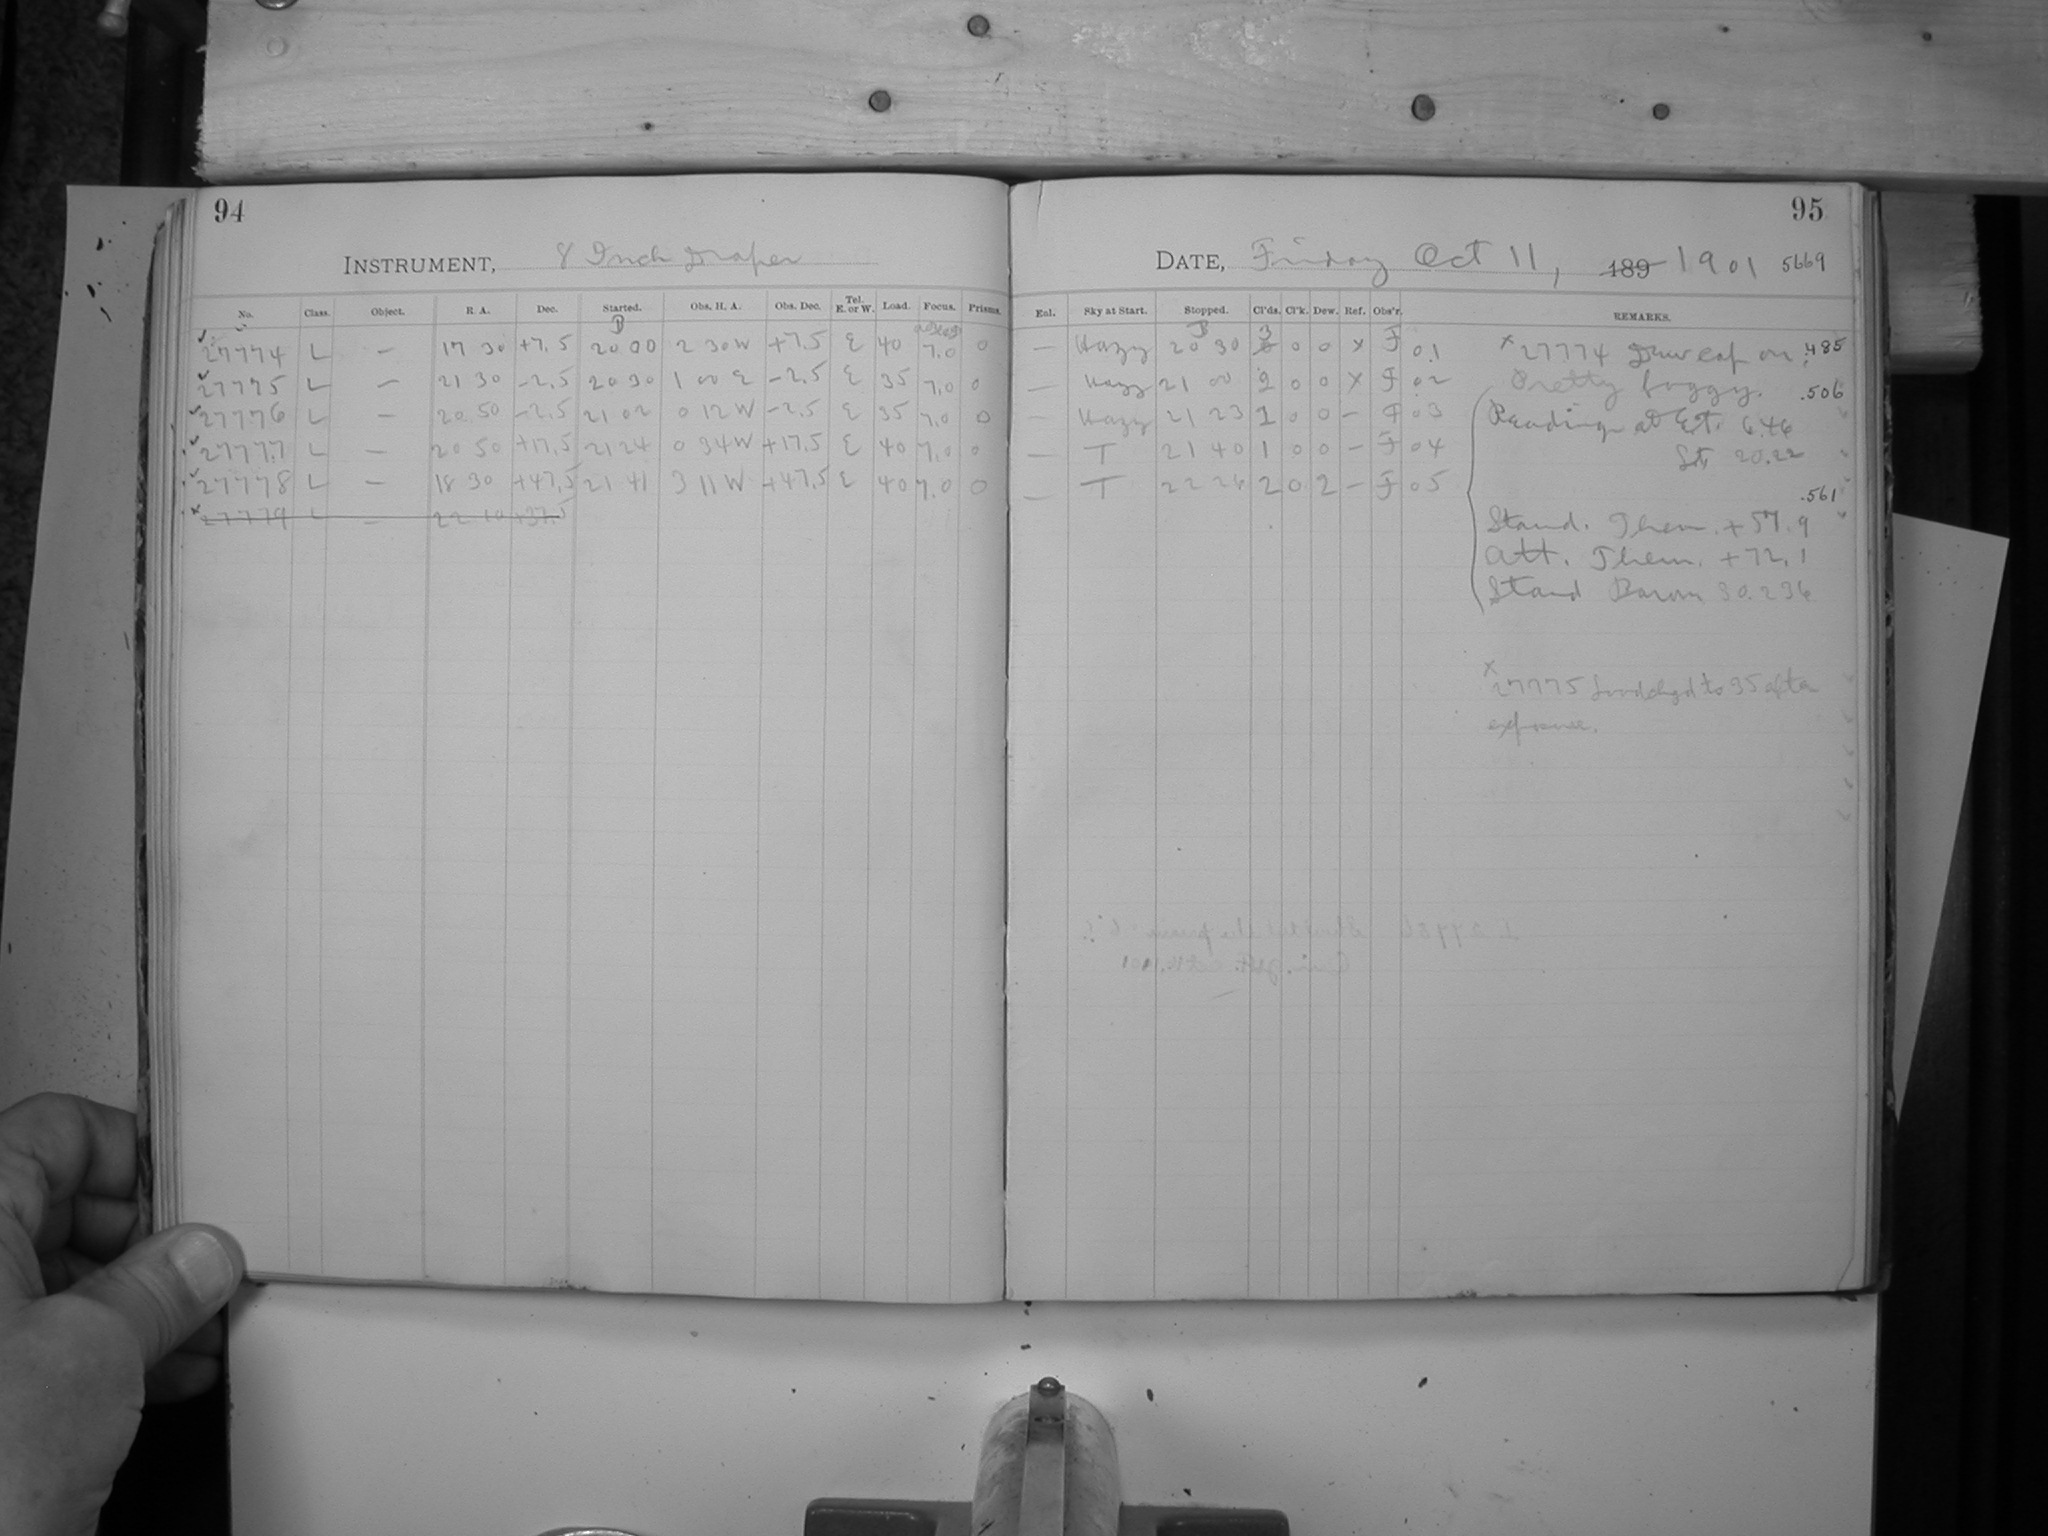 94
INSTRUMENT, 8 Inch Draper
No. Class. Object. R. A. Dec. Started. Obs. H. A. Obs. Dec. Tel. E. or W. Load. Focus. Prisms.
27774 L — 17 30 +7.5 20 00 2 30 W +7.5 E 40 7.0 0
27775 L — 21 30 -2.5 20 30 1 00 E -2.5 E 35 7.0 0
27776 L — 20 50 -2.5 21 02 0 12 W -2.5 E 35 7.0 0
27777 L — 20 50 +17.5 21 24 0 34 W +17.5 E 40 7.0 0
27778 L — 18 30 +47.5 21 41 3 11 W +47.5 E 40 7.0 0
27779 L — 22 10 +37.5
95
DATE, Friday Oct 11, 189 1901 5669
Eol. Sky at Start. Stopped. Cl'ds. Cl'k. Dew. Ref. Obs'r. REMARKS.
— Hazy 20 30 3 0 0 x F 01
— Hazy 21 00 2 0 0 x F 02
— Hazy 21 23 1 0 0 – F 03
— T 21 40 1 0 0 – F 04
— T 22 26 2 0 2 – F 05
x 27774 Dew cap on .485
Pretty foggy. .506
Reading at Ext. 6.46
St. 20.22
.561
Stand. Them. +57.9
Att. Them. +72.1
Stand Barom 30.236
x
27775 Load chgd to 35 after
exposure.